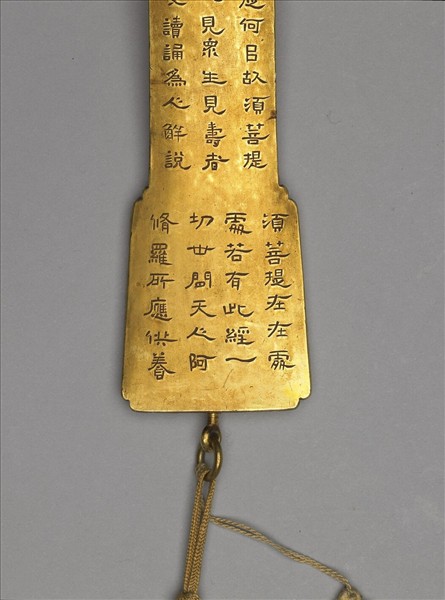 何㠯故須菩提
見眾生見壽者
讀誦為人解說
須菩提在在處
處若有此經一
切世間天人阿
脩羅所應供養